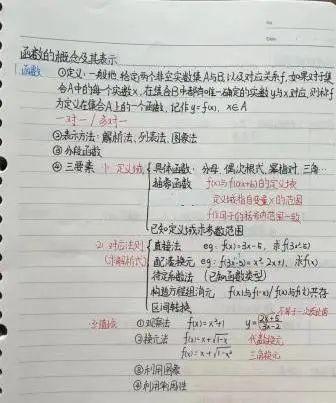 函数的概念及其表示
1.函数 ①定义:一般地,给定两个非空实数集A与B,以及对应关系f,如果对于集
合A中的每一个实数x,在集合B中都有唯一确定的实数y与x对应,则称f
为定义在集合A上的一个函数,记作y=f(x),x∈A
一对一/多对一
②表示方法:解析法、列表法、图象法
③分段函数
④三要素 1)定义域 具体函数:分母、偶次根式、幂指对、三角…
抽象函数 f(x)与f(g(x))的定义域
定义域指自变量x的范围
f作用下的括号内范围一致
已知定义域求参数范围
2)对应法则 直接法 eg:f(x)=3x-5,求f(3x²-5)
(求解析式) 配凑换元 eg:f(3x-5)=x²-2x+1,求f(x)
待定系数法 (已知函数类型)
构造方程组消元 f(x)与f(-x)/f(x)与f(1/x)共存
区间转换
3)值域 ①观察法 f(x)=x²+1
②换元法 f(x)=x+√1-x 代数换元
f(x)=x+√1-x² 三角换元
③利用图象
④利用单调性